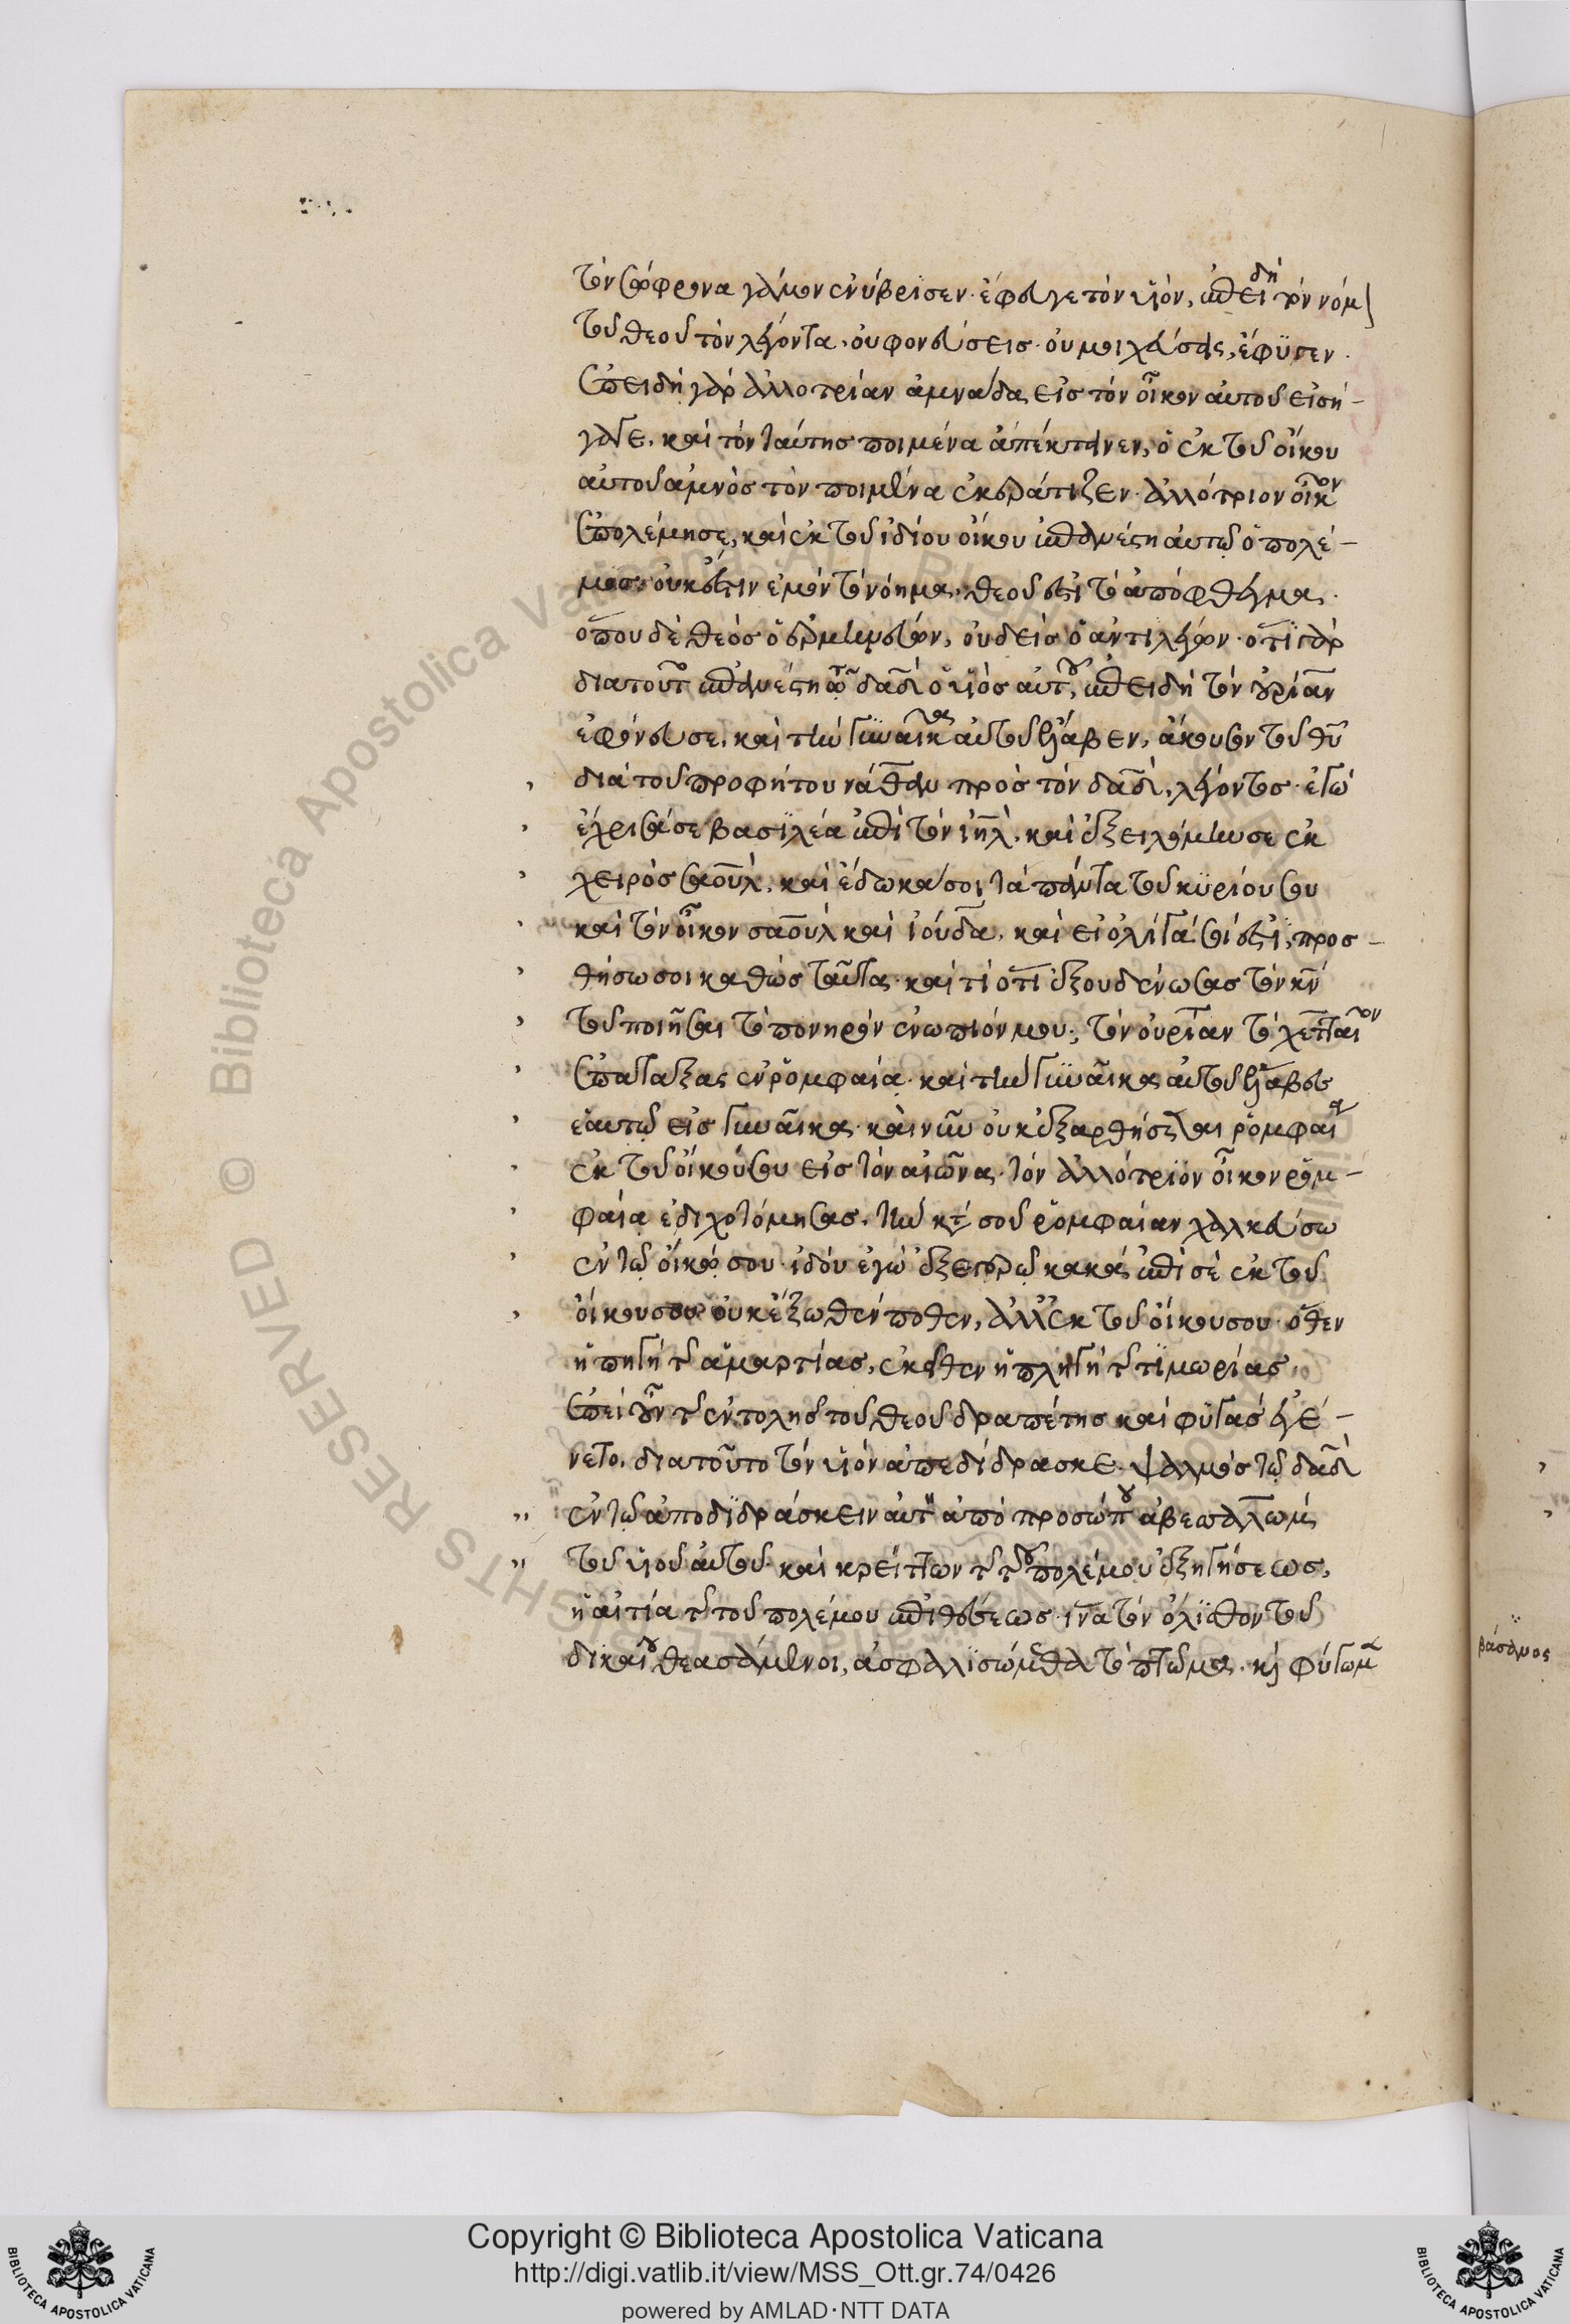 τὸν σώφρονα γάμον ἐνύβρισεν. ἔφευγε τὸν υἱὸν, ἐπειδὴ τὸν νόμ
τοῦ θεοῦ τὸν λέγοντα, οὐ φονεύσεις. οὐ μοιχεύσεις, ἔφυγεν.
ἐπειδὴ γὰρ ἀλλοτρίαν ἀμνάδα εἰς τὸν οἶκον αὐτοῦ εἰσή-
γαγε, καὶ τὸν ταύτης ποιμένα ἀπέκτανεν, ὁ ἐκ τοῦ οἴκου
αὐτοῦ ἀμνὸς τὸν ποιμένα ἐκεράτιζεν. ἀλλότριον οἶκον
ἐπολέμησε, καὶ ἐκ τοῦ ἰδίου οἴκου ἐπανέστη αὐτῷ ὁ πολέ-
μος. οὐκ ἔστιν ἐμὸν τὸ νόημα, θεοῦ ἐστὶ τὸ ἀπόφθεγμα.
ὅπου δὲ θεὸς ὁ ἑρμηνεύων, οὐδεὶς ὁ ἀντιλέγων. ὅτι γὰρ
διατοῦτο ἐπανέστη τῷ δαδ ὁ υἱὸς αὐτοῦ, ἐπειδὴ τὸν οὐρίαν
ἐφόνευσε, καὶ τὴν γυναῖκα αὐτοῦ ἔλαβεν, ἄκουσον τοῦ θυ
διὰ τοῦ προφήτου νάθαν πρὸς τὸν δαδ, λέγοντος. ἐγὼ
ἔχρισά σε βασιλέα ἐπὶ τὸν ιηλ, καὶ ἐξειλόμην σε ἐκ
χειρὸς σαοὺλ, καὶ ἔδωκά σοι τὰ πάντα τοῦ κυρίου σου
καὶ τὸν οἶκον σαοὺλ καὶ ἰούδα, καὶ εἰ ὀλίγα σοί ἐστι, προσ-
θήσω σοι καθὼς ταῦτα. καὶ τί ὅτι ἐξουδένωσας τὸν κν
τοῦ ποιῆσαι τὸ πονηρὸν ἐνώπιόν μου; τὸν οὐρίαν τὸ χετταῖον
ἐπάταξας ἐν ῥομφαίᾳ. καὶ τὴν γυναῖκα αὐτοῦ ἔλαβες
ἑαυτῷ εἰς γυναῖκα. καὶ νῦν οὐκ ἐξαρθήσεται ῥομφαία
ἐκ τοῦ οἴκου σου εἰς τὸν αἰῶνα. τὸν ἀλλότριον οἶκον ῥομ-
φαίᾳ ἐδιχοτόμησας, τὴν κατὰ σοῦ ῥομφαίαν χαλκεύσω
ἐν τῷ οἴκῳ σου. ἰδοὺ ἐγὼ ἐξεγερῶ κακὰ ἐπὶ σὲ ἐκ τοῦ
οἴκου σου. οὐκ ἔξωθέν ποθεν, ἀλλ' ἐκ τοῦ οἴκου σου. ὅθεν
ἡ πηγὴ τῆς ἁμαρτίας, ἐκεῖθεν ἡ πληγὴ τῆς τιμωρίας.
ἐπεὶ οὖν τῆς ἐντολῆς τοῦ θεοῦ δραπέτης καὶ φυγὰς ἐγέ-
νετο, διατοῦτο τὸν υἱὸν ἀπεδίδρασκε. ψαλμὸς τῷ δαδ
ἐν τῷ ἀποδιδράσκειν αὐτὸν ἀπὸ προσώπου ἀβεσαλὼμ
τοῦ υἱοῦ αὐτοῦ. καὶ κρείττων τῆς τοῦ πολέμου ἐξηγήσεως,
ἡ αἰτία τῆς τοῦ πολέμου ἐπιθέσεως. ἵνα τὸν ὄλισθον τοῦ
δικαίου θεασάμενοι, ἀσφαλισώμεθα τὸ πτῶμα. καὶ φύγωμ
βάσανος
Copyright © Biblioteca Apostolica Vaticana
http://digi.vatlib.it/view/MSS_Ott.gr.74/0426
powered by AMLAD·NTT DATA